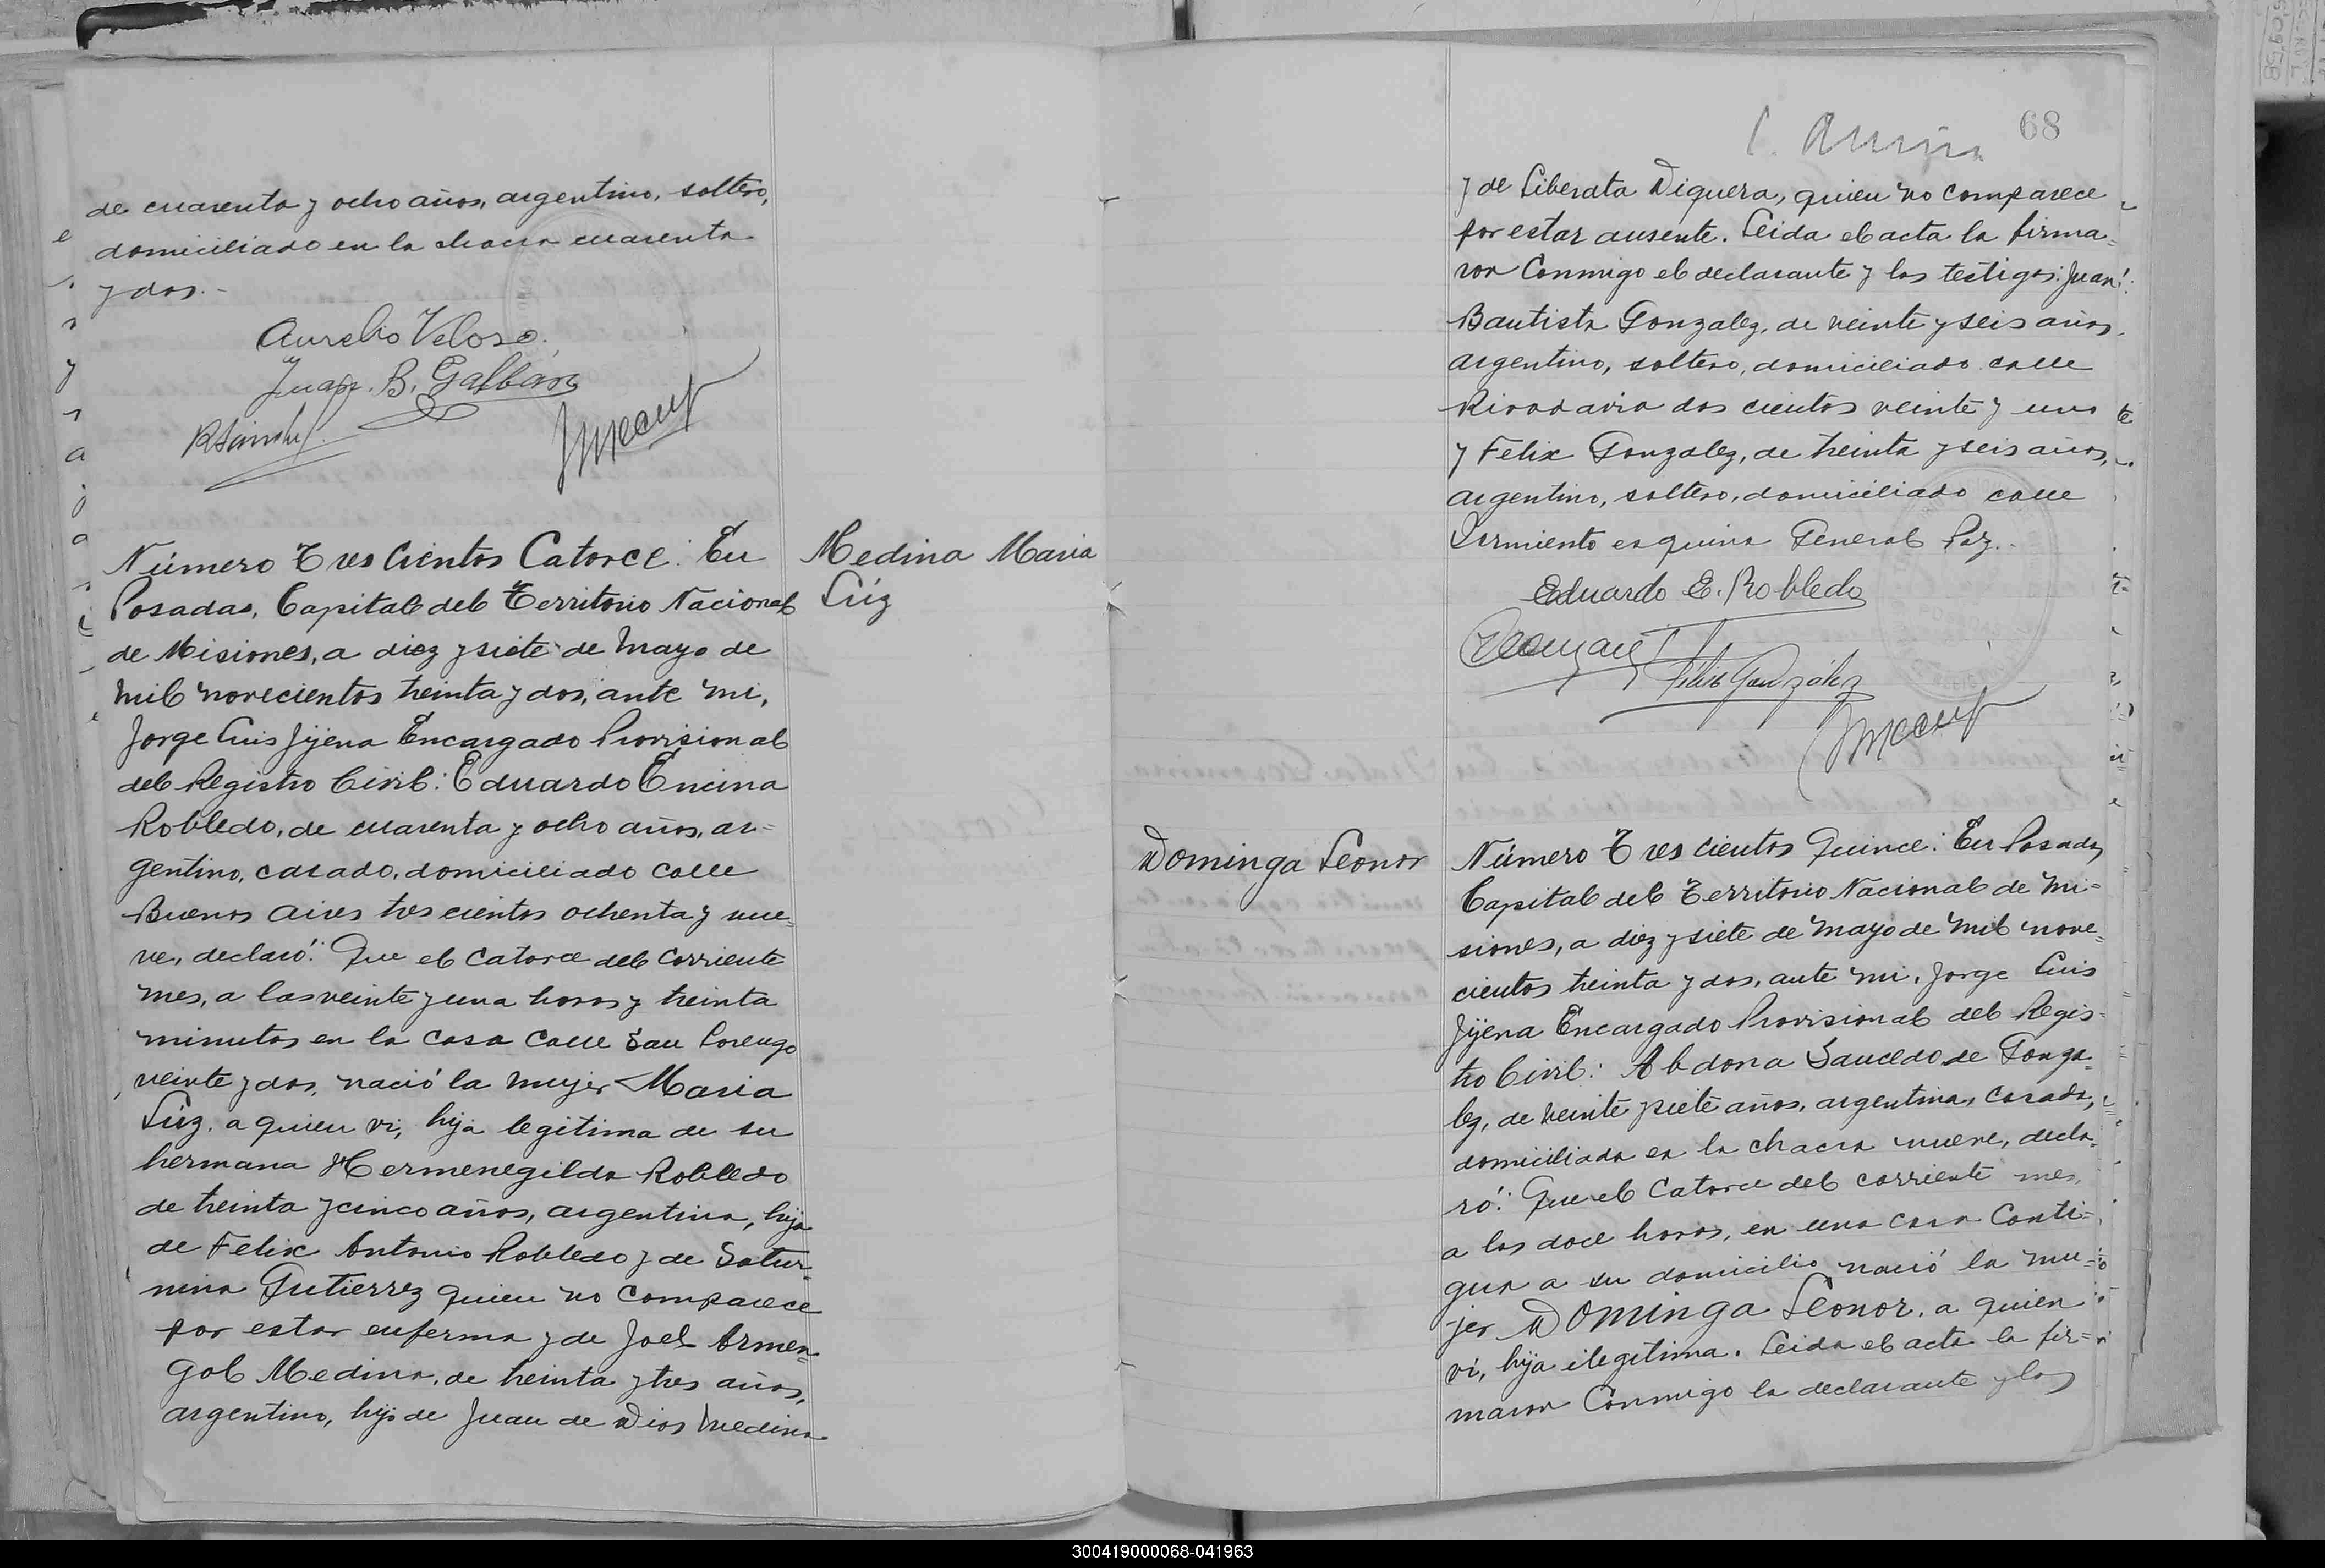 de cuarenta y ocho años, argentino, soltero,
domiciliado en la chacra cuarenta
y dos.-
Aurelio Veloso.
Juan. B. Galbán
Número Tres Cientos Catorce: En
Posadas, Capital del Territorio Nacional
de Misiones, a diez y siete de Mayo de
mil novecientos treinta y dos, ante mi,
Jorge Luis Jijena Encargado Provisional
del Registro Civil: Eduardo Encina
Robledo, de cuarenta y ocho años, ar=
gentino, casado, domiciliado calle
Buenos Aires tres cientos ochenta y nue=
ve, declaró: Que el catorce del corriente
mes, a las veinte y una horas y treinta
minutos en la casa calle San Lorenzo
veinte y dos, nació la mujer Maria
Lúz, a quien vi, hija legitima de su
hermana Hermenegilda Robledo
de treinta y cinco años, argentina, hija
de Felix Antonio Robledo y de Satur=
nina Gutierrez quien no comparece
por estar enferma y de Joel Armen=
gol Medina, de treinta y tres años,
argentino, hijo de Juan de Dios Medina
Medina Maria
Lúz
68
y de Liberata Diquera, quien no comparece
por estar ausente. Leida el acta la firma=
ron conmigo el declarante y los testigos: Juan
Bautista Gonzalez, de veinte y seis años,
argentino, soltero, domiciliado calle
Rivadavia dos cientos veinte y uno
y Felix Gonzalez, de treinta y seis años,
argentino, soltero, domiciliado calle
Sarmiento esquina General Paz.-
Eduardo E. Robledo
Felix González
Dominga Leonor
Número Tres cientos Quince: En Posadas
Capital del Territorio Nacional de Mi=
siones, a diez y siete de Mayo de mil nove=
cientos treinta y dos, ante mi, Jorge Luis
Jijena Encargado Provisional del Regis=
tro Civil: Abdona Saucedo de Gonza=
lez, de veinte y siete años, argentina, casada,
domiciliada en la chacra nueve, decla=
ró: Que el catorce del corriente mes,
a las doce horas, en una casa conti=
gua a su domicilio nació la mu=
jer Dominga Leonor, a quien
vi, hija ilegitima. Leida el acta la fir=
maron conmigo la declarante y los
300419000068-041963